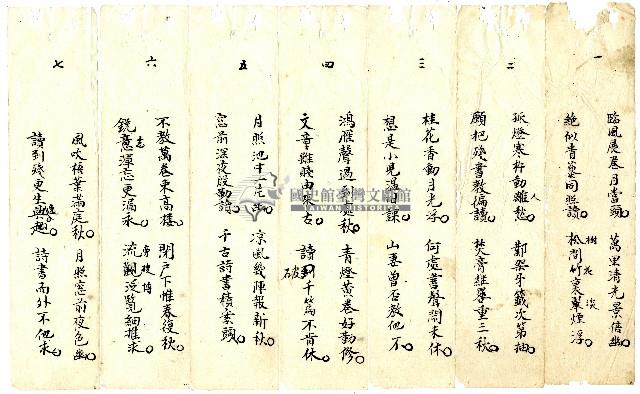 一
臨風展卷月當頭 萬里清光景倍幽
絶似青藜同照讀 松間竹裏翠煙浮
樹 花 淡
二
孤燈寒杵動離愁 鄴架牙籤次第抽
人
願把殘書教徧讀 焚膏繼晷重三秋
三
桂花香動月光浮 何處書聲閙未休
想是小兒 課 山妻曾否教他不
四
鴻雁聲過到處秋 青燈黃卷好勤修
文章難賤由來古 讀到千篇不肯休
破
五
月照池 涼風幾陣報新秋
窓前深夜殷勤讀 千古詩書積案頭
六
不教萬卷束高樓 閉戶下帷春復秋
銳意渾忘更漏永 流觀泛覽細推求
志
旁搜博
七
風吹梧葉滿庭秋 月照窓前夜色幽
讀到殘更生 詩書而外不他求
國史館臺灣文獻館
TAIWAN HISTORICA